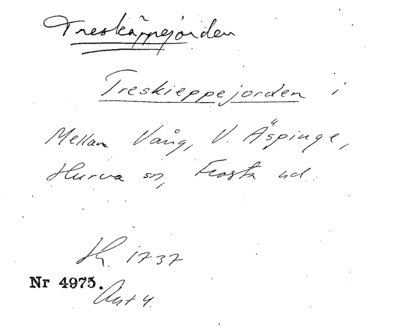 Treskäppejorden
Treskieppejorden i
Mellan Vång, V. Äspinge,
Hurva sn, Frosta hd.
1737
Nr 4975.
Akt 4.